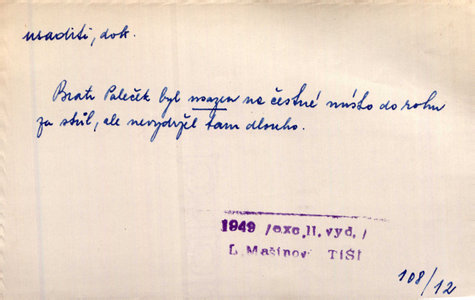 usaditi, dok.
Bratr Paleček byl usazen na čestné místo do rohu
za stůl, ale nevydržel tam dlouho.
1949 /exc.II. vyd./
L. Mašínová TIŠI
108/12